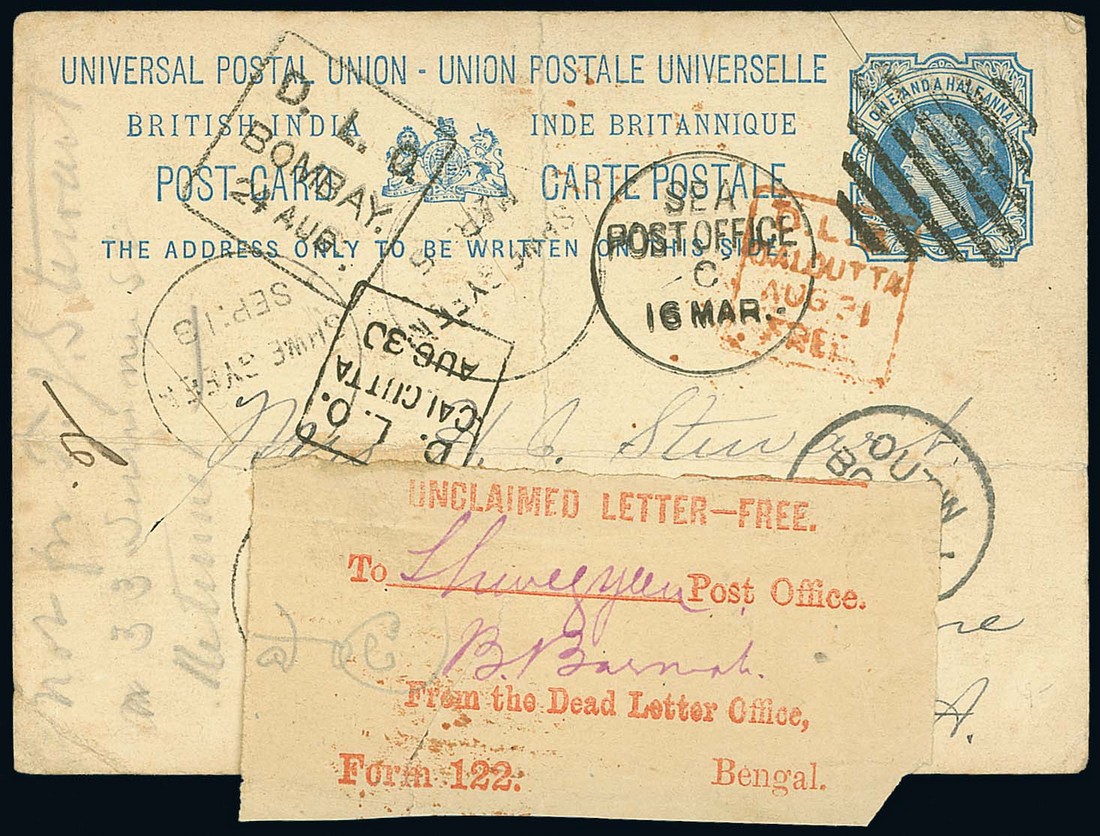 UNIVERSAL POSTAL UNION - UNION POSTALE UNIVERSELLE
BRITISH INDIA INDE BRITANNIQUE
POST CARD CARTE POSTALE
THE ADDRESS ONLY TO BE WRITTEN ON THIS SIDE
ONE AND A HALF ANNA
D. L. O.
BOMBAY.
24 AUG.
SEA
POST OFFICE
C
16 MAR.
D.L.O.
CALCUTTA
AUG 31
FREE
SHWE GYEEN
MAR
5
SHWE GYEEN
SEP: 13
D. L. O.
CALCUTTA
AUG 30
H. C. Stewart
Not for J. Stewart
at 33
Returned
UNCLAIMED LETTER—FREE.
To Shwegyeen Post Office.
B. Burmah.
From the Dead Letter Office,
Form 122. Bengal.
A.